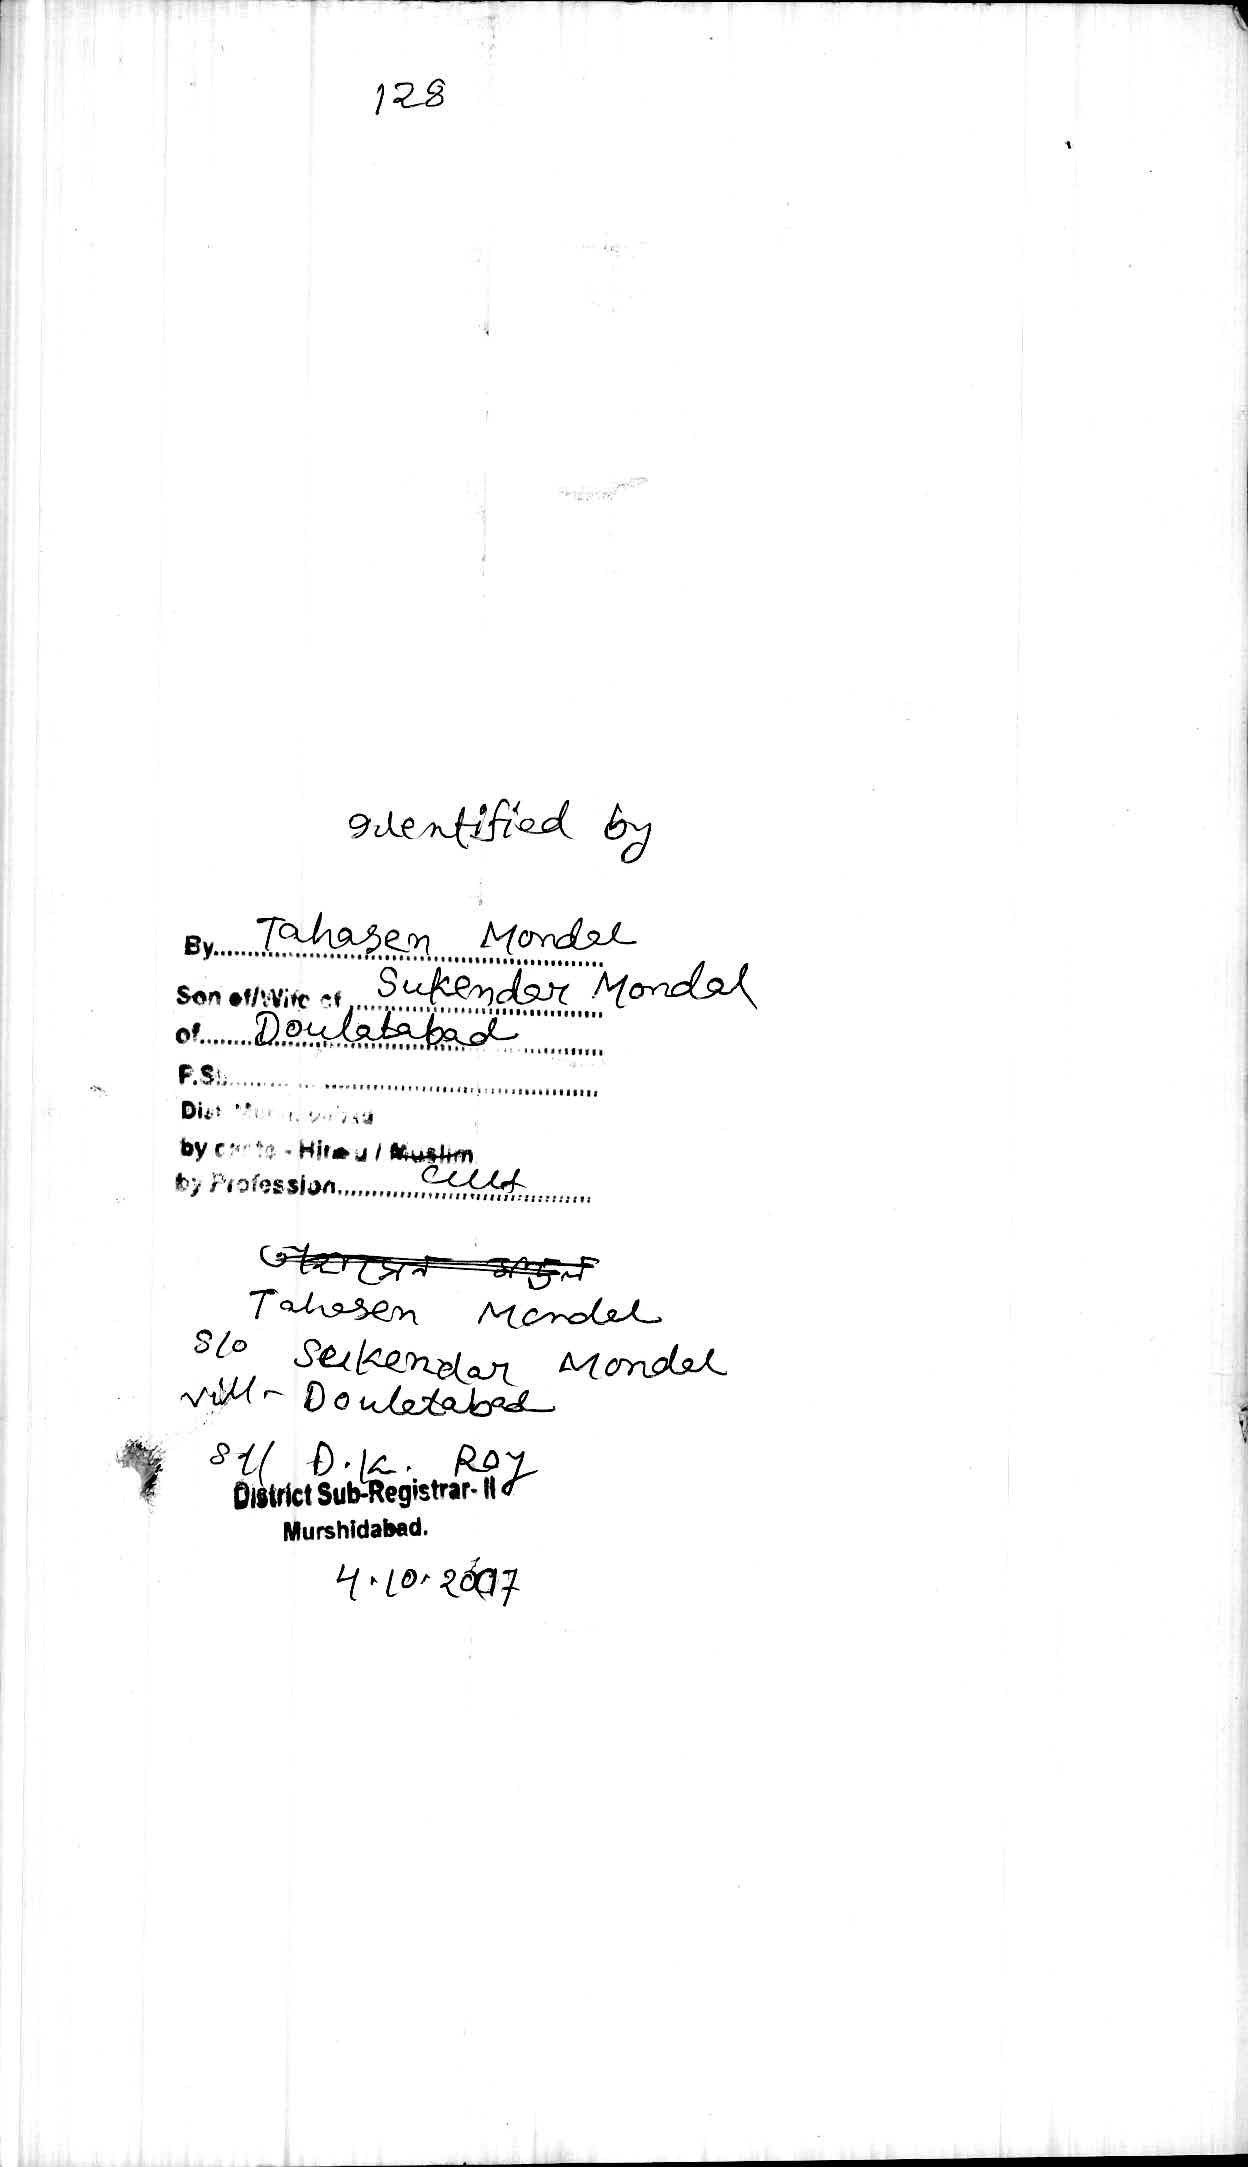 128
Identified by
By........Tahasen Mondal
Son of/Wife of Sukendar Mondal
of........Doulatabad
P.S.
Dist Murshidabad
by caste - Hindu / Muslim
by Profession........
তাহাসেন মন্ডল
Tahasen Mondal
S/o Seikendar Mondal
vill - Douletabad
Sd/ D.K. Roy
District Sub-Registrar- II
Murshidabad.
4.10.2007